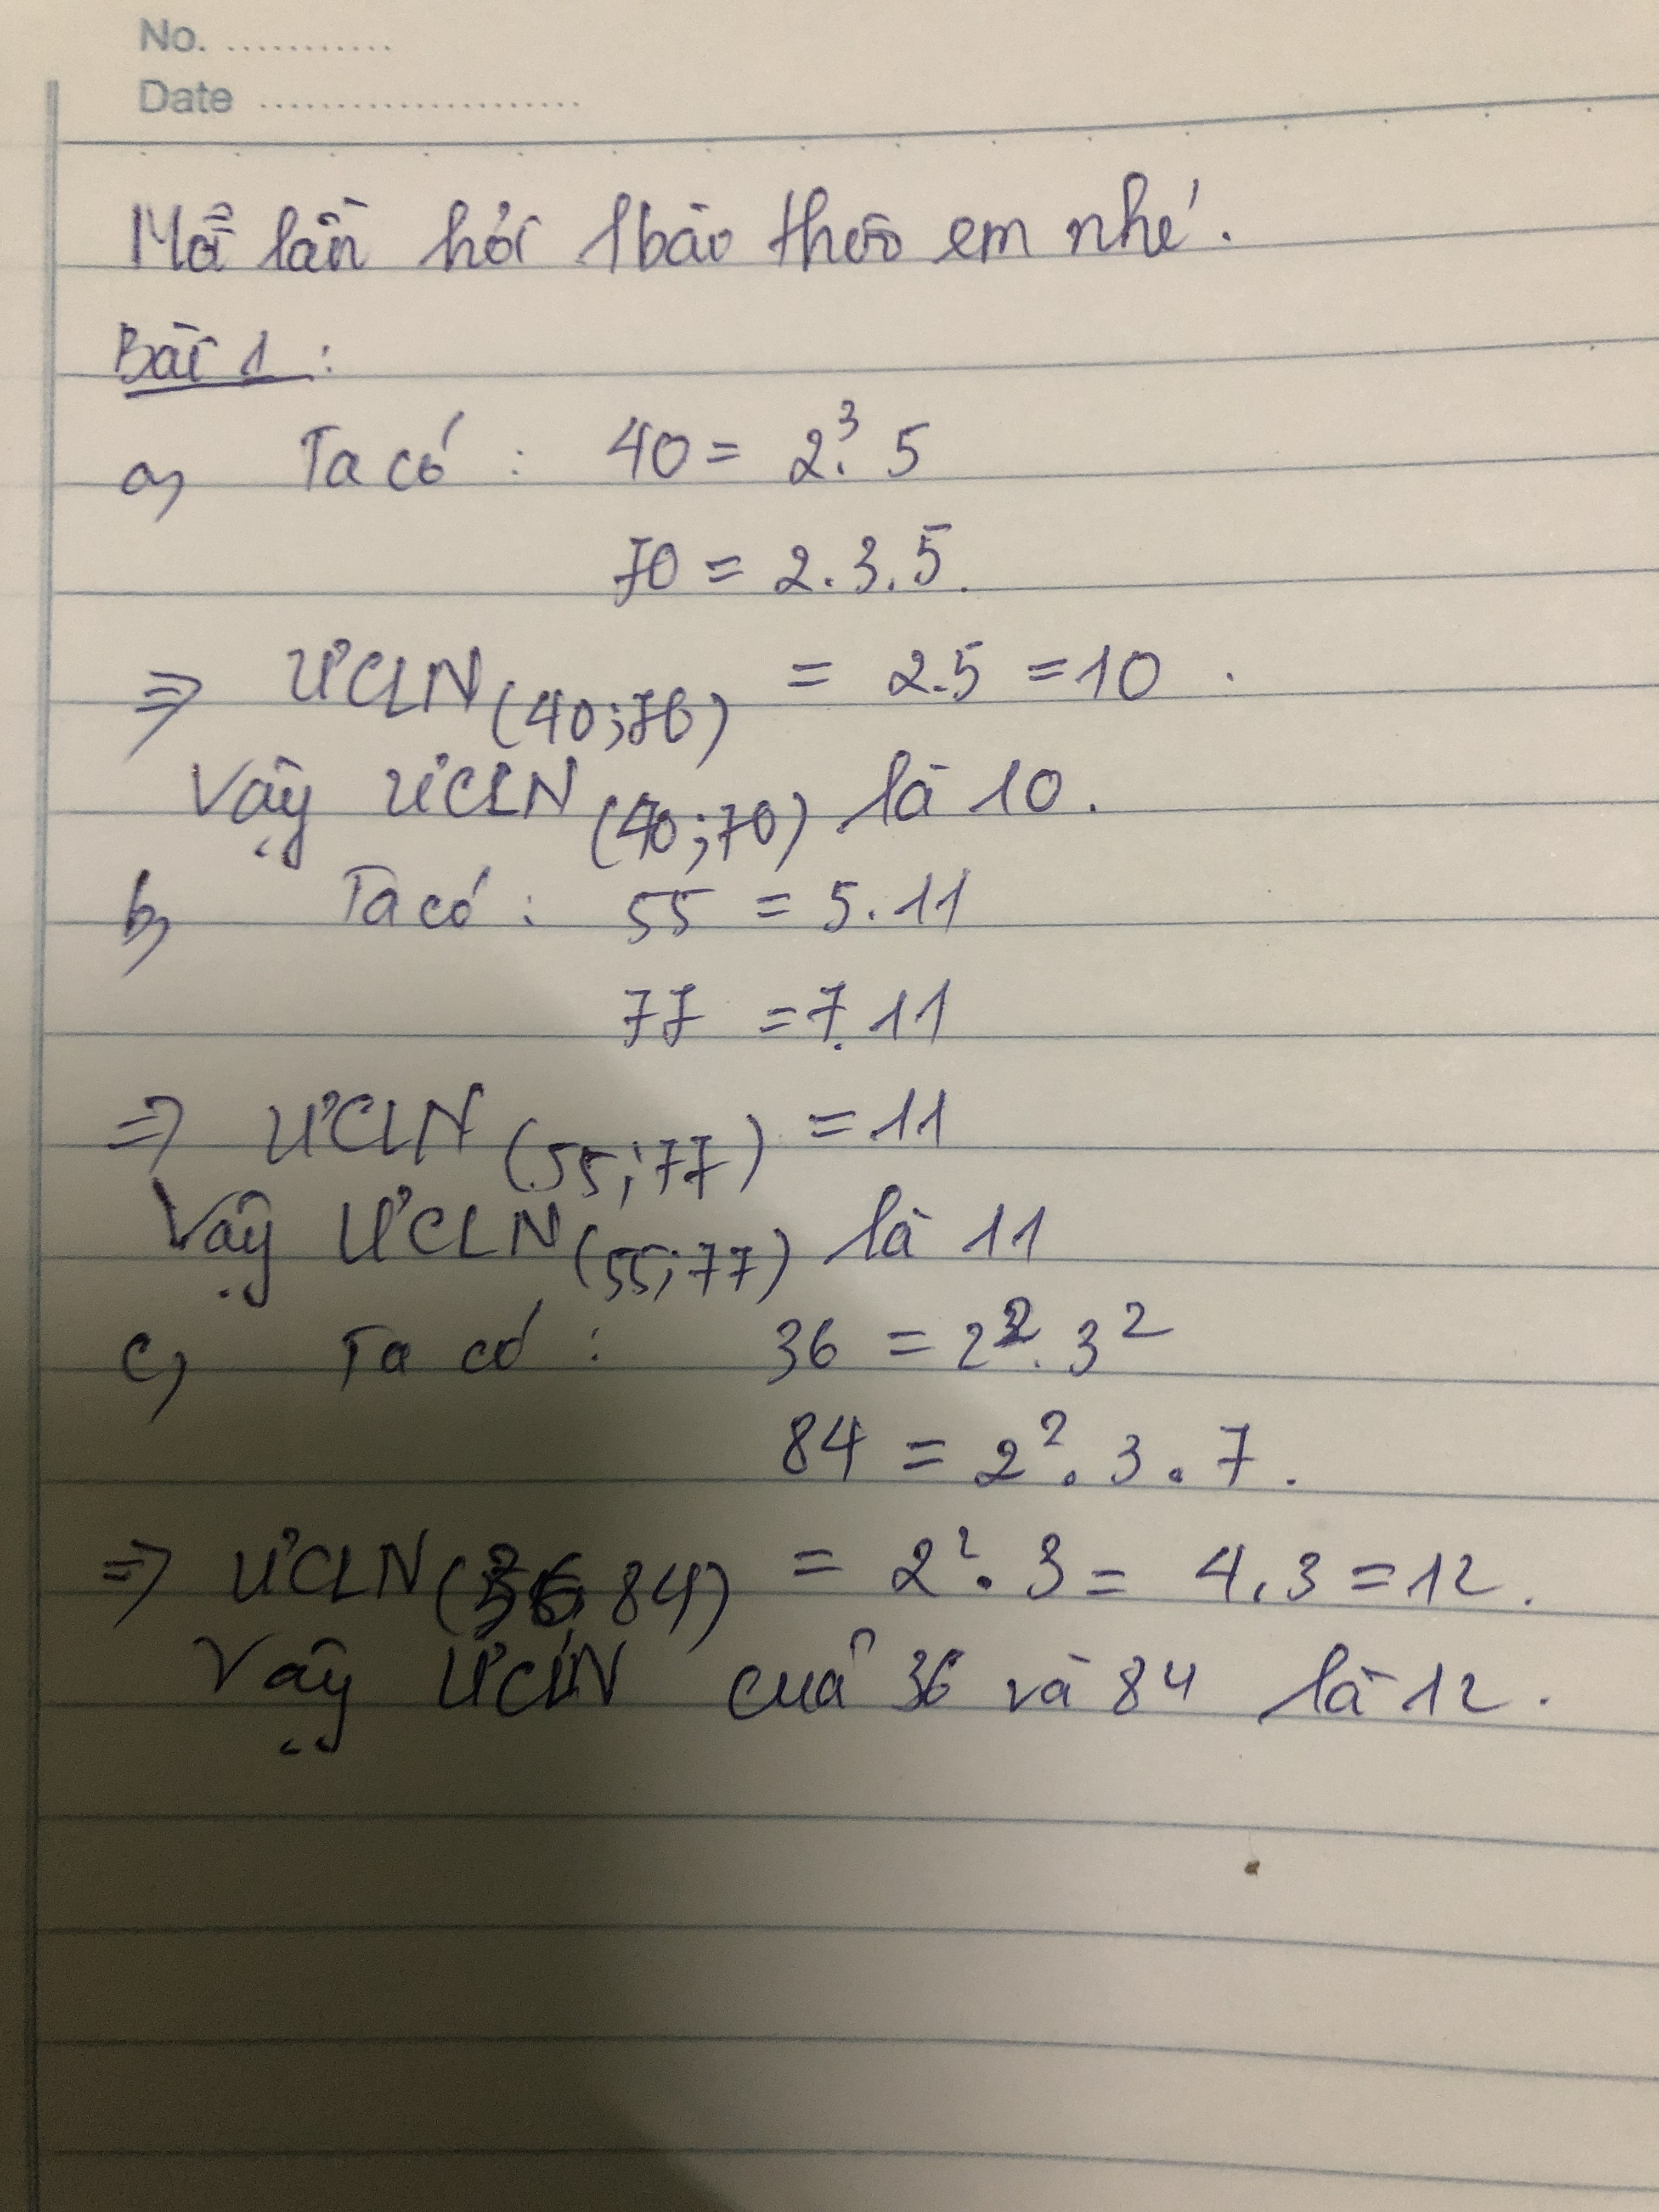 No. ...........
Date .....................
Mỗ lần hỏi 1bài thôi em nhé.
Bài 1 :
a, Ta có : 40 = 2³. 5
70 = 2.3.5.
=> ƯCLN(40;70) = 2.5 = 10 .
Vậy ƯCLN(40;70) là 10.
b, Ta có : 55 = 5.11
77 = 7.11
=> ƯCLN(55;77) = 11
Vậy ƯCLN(55;77) là 11
c, Ta có : 36 = 2². 3²
84 = 2². 3 . 7 .
=> ƯCLN(36;84) = 2². 3 = 4.3 = 12 .
Vậy ƯCLN của 36 và 84 là 12 .